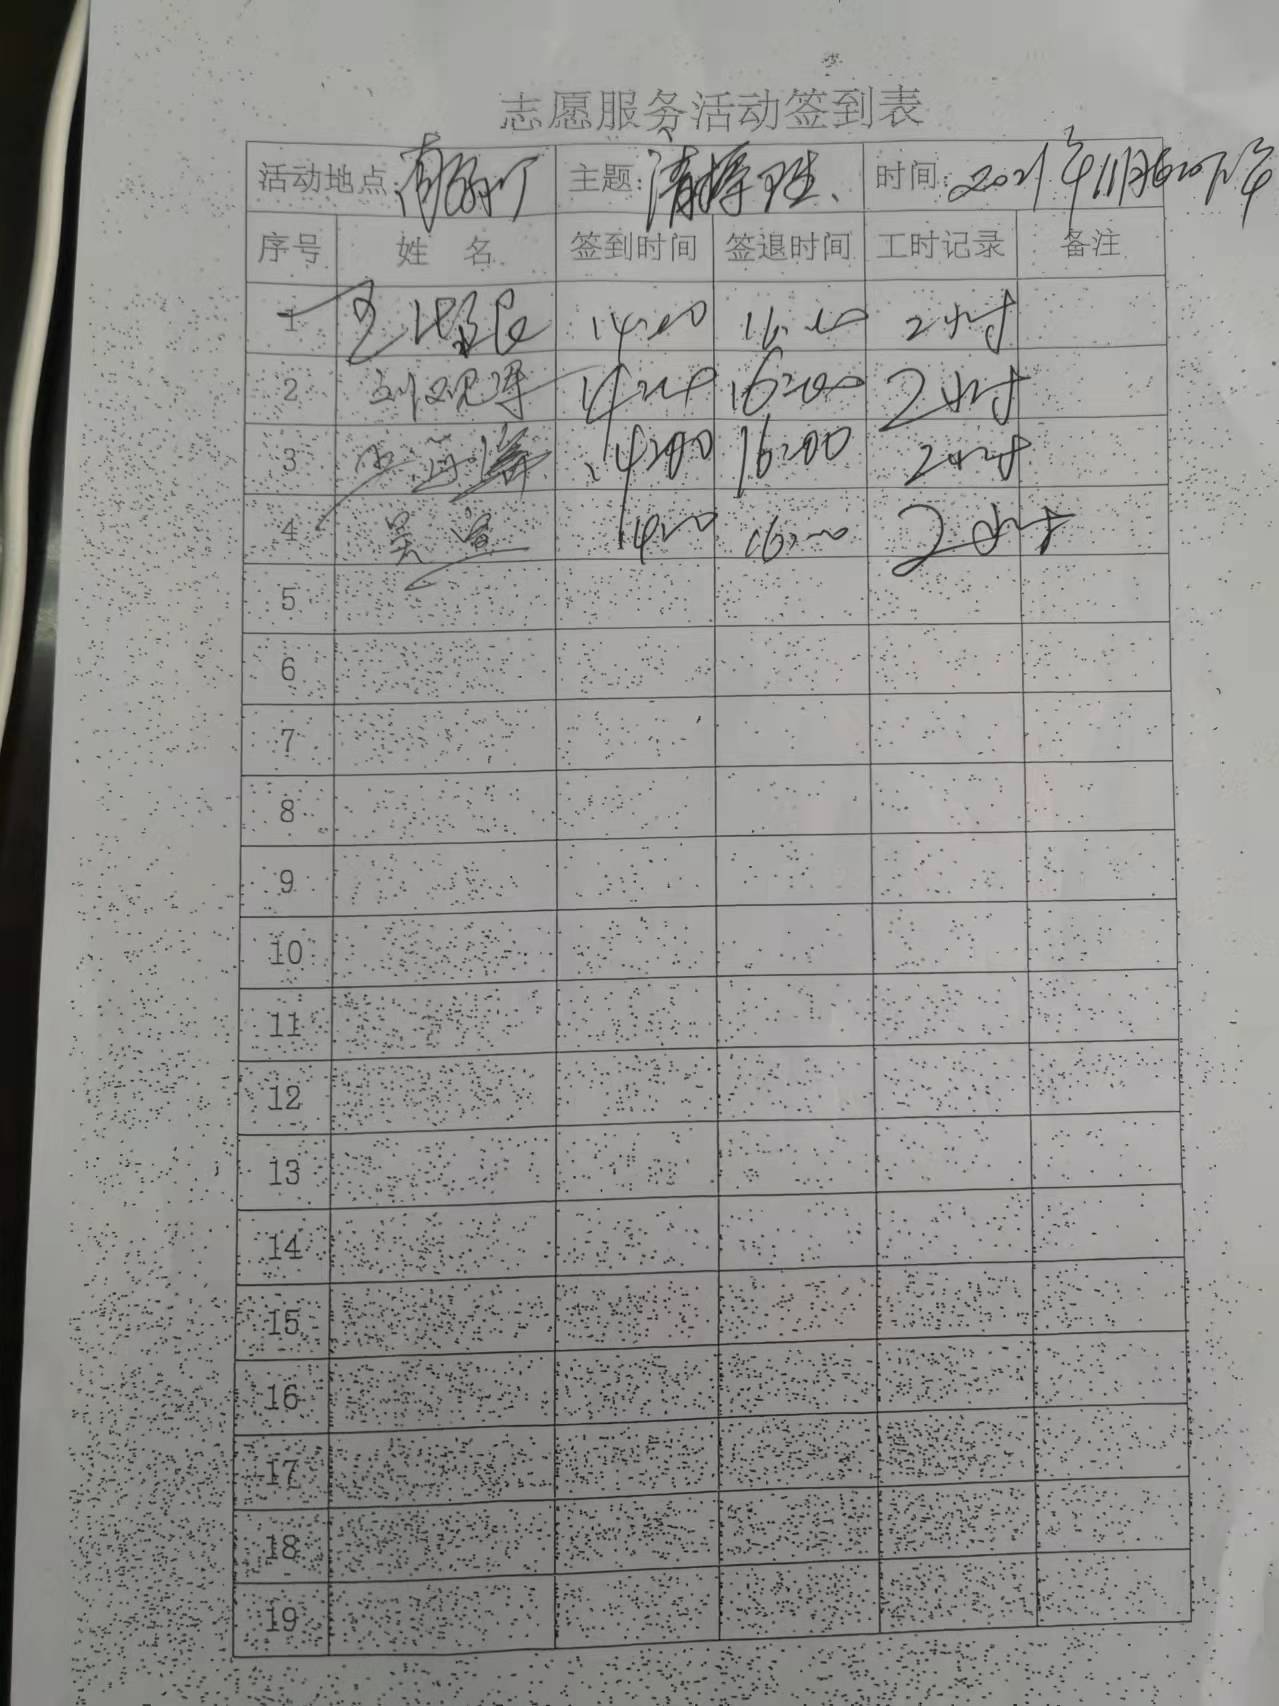 志愿服务活动签到表
活动地点: 主题: 时间: 2021年11月20下午
序号 姓 名 签到时间 签退时间 工时记录 备注
1 14:00 16:00 2小时
2 14:00 16:00 2小时
3 14:00 16:00 2小时
4 吴 14:00 16:00 2小时
5
6
7
8
9
10
11
12
13
14
15
16
17
18
19